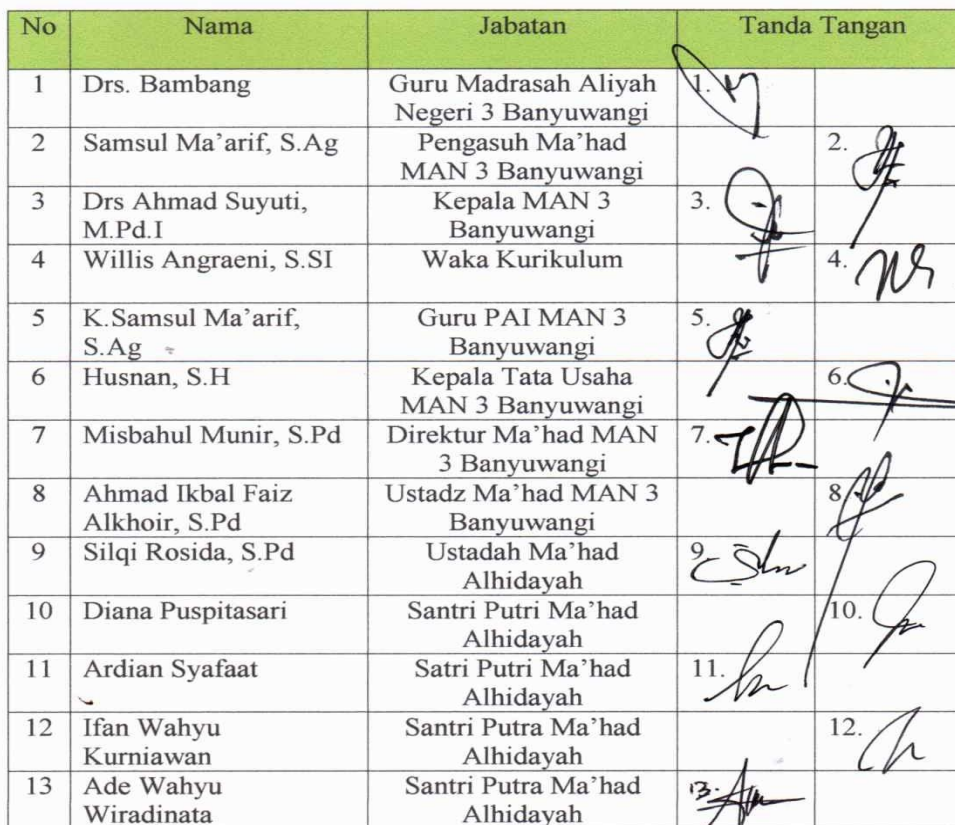 No Nama Jabatan Tanda Tangan
1 Drs. Bambang Guru Madrasah Aliyah 1.
Negeri 3 Banyuwangi
2 Samsul Ma'arif, S.Ag Pengasuh Ma'had 2.
MAN 3 Banyuwangi
3 Drs Ahmad Suyuti, Kepala MAN 3 3.
M.Pd.I Banyuwangi
4 Willis Angraeni, S.SI Waka Kurikulum 4.
5 K.Samsul Ma'arif, Guru PAI MAN 3 5.
S.Ag Banyuwangi
6 Husnan, S.H Kepala Tata Usaha 6.
MAN 3 Banyuwangi
7 Misbahul Munir, S.Pd Direktur Ma'had MAN 7.
3 Banyuwangi
8 Ahmad Ikbal Faiz Ustadz Ma'had MAN 3 8
Alkhoir, S.Pd Banyuwangi
9 Silqi Rosida, S.Pd Ustadah Ma'had 9.
Alhidayah
10 Diana Puspitasari Santri Putri Ma'had 10.
Alhidayah
11 Ardian Syafaat Satri Putri Ma'had 11.
Alhidayah
12 Ifan Wahyu Santri Putra Ma'had 12.
Kurniawan Alhidayah
13 Ade Wahyu Santri Putra Ma'had 13.
Wiradinata Alhidayah